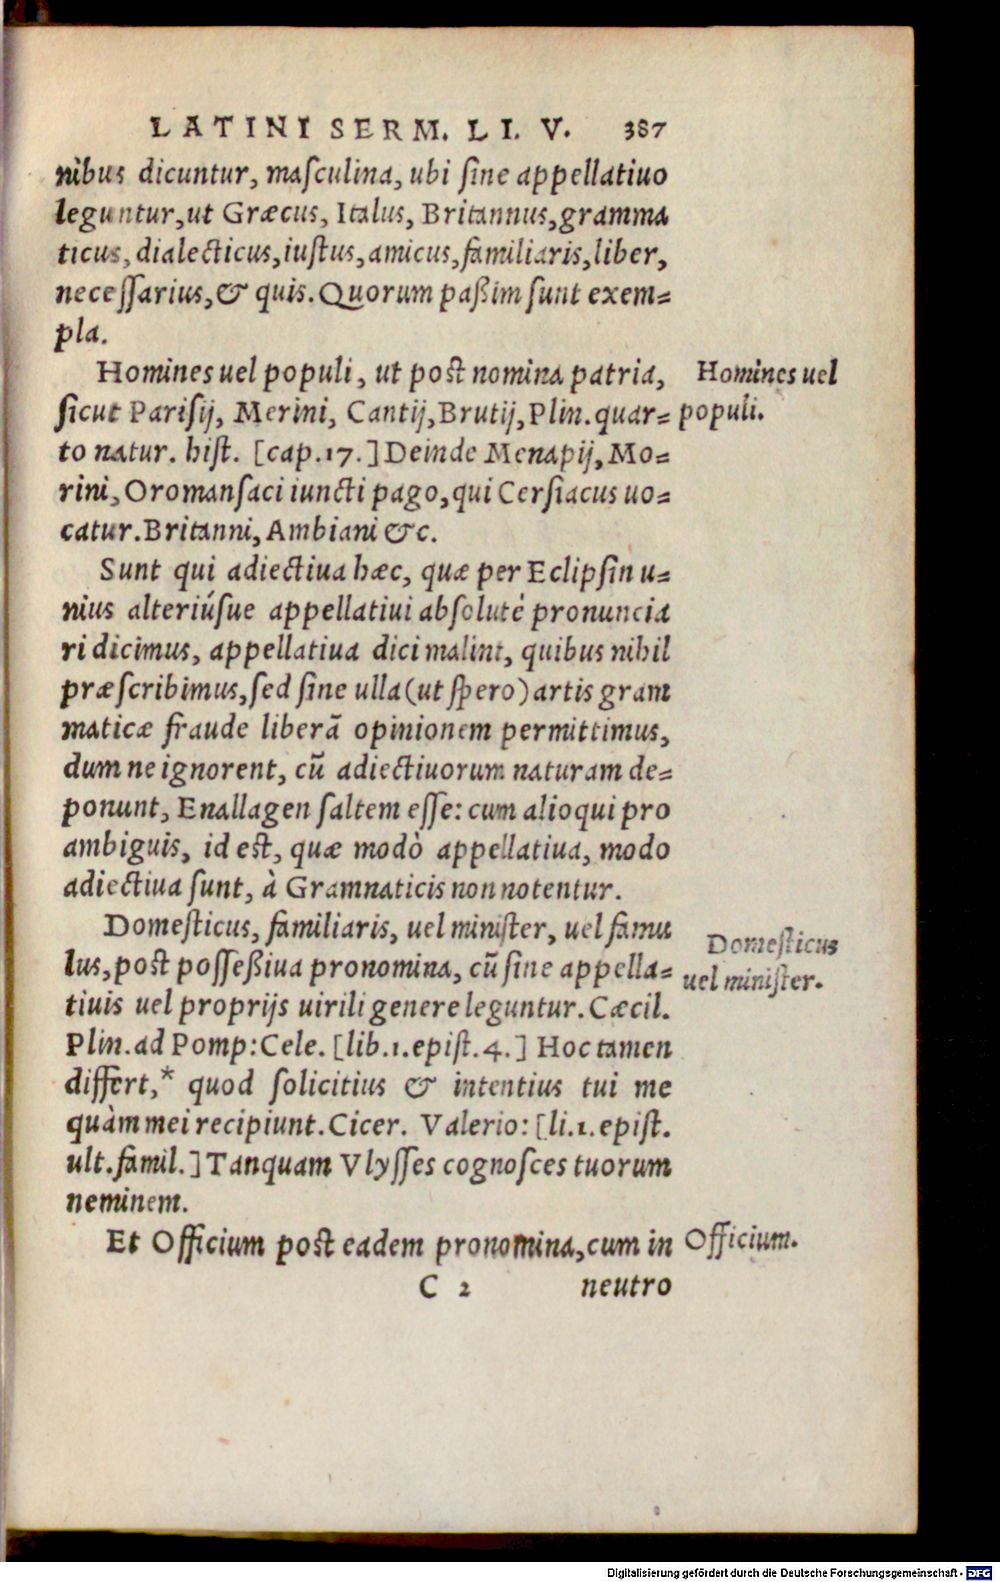 LATINI SERM. LI. V. 387
nibus dicuntur, masculina, ubi sine appellatiuo
leguntur, ut Græcus, Italus, Britannus, gramma
ticus, dialecticus, iustus, amicus, familiaris, liber,
necessarius, & quis. Quorum paßim sunt exem=
pla.
Homines uel populi, ut post nomina patria,
Homines uel
sicut Parisij, Merini, Cantij, Brutij, Plin. quar=
populi.
to natur. hist. [cap.17.] Deinde Menapij, Mo=
rini, Oromansaci iuncti pago, qui Cersiacus uo=
catur. Britanni, Ambiani &c.
Sunt qui adiectiua hæc, quæ per Eclipsin u=
nius alteriúsue appellatiui absolutè pronuncia
ri dicimus, appellatiua dici malint, quibus nihil
præscribimus, sed sine ulla (ut spero) artis gram
maticæ fraude liberã opinionem permittimus,
dum ne ignorent, cũ adiectiuorum naturam de=
ponunt, Enallagen saltem esse: cum alioqui pro
ambiguis, id est, quæ modò appellatiua, modo
adiectiua sunt, à Gramnaticis non notentur.
Domesticus, familiaris, uel minister, uel famu
Domesticus
lus, post posseßiua pronomina, cũ sine appella=
uel minister.
tiuis uel proprijs uirili genere leguntur. Cæcil.
Plin. ad Pomp: Cele. [lib.1.epist.4.] Hoc tamen
differt,* quod solicitius & intentius tui me
quàm mei recipiunt. Cicer. Valerio: [li.1.epist.
ult.famil.] Tanquam Vlysses cognosces tuorum
neminem.
Et Officium post eadem pronomina, cum in
Officium.
C 2 neutro
Digitalisierung gefördert durch die Deutsche Forschungsgemeinschaft - DFG